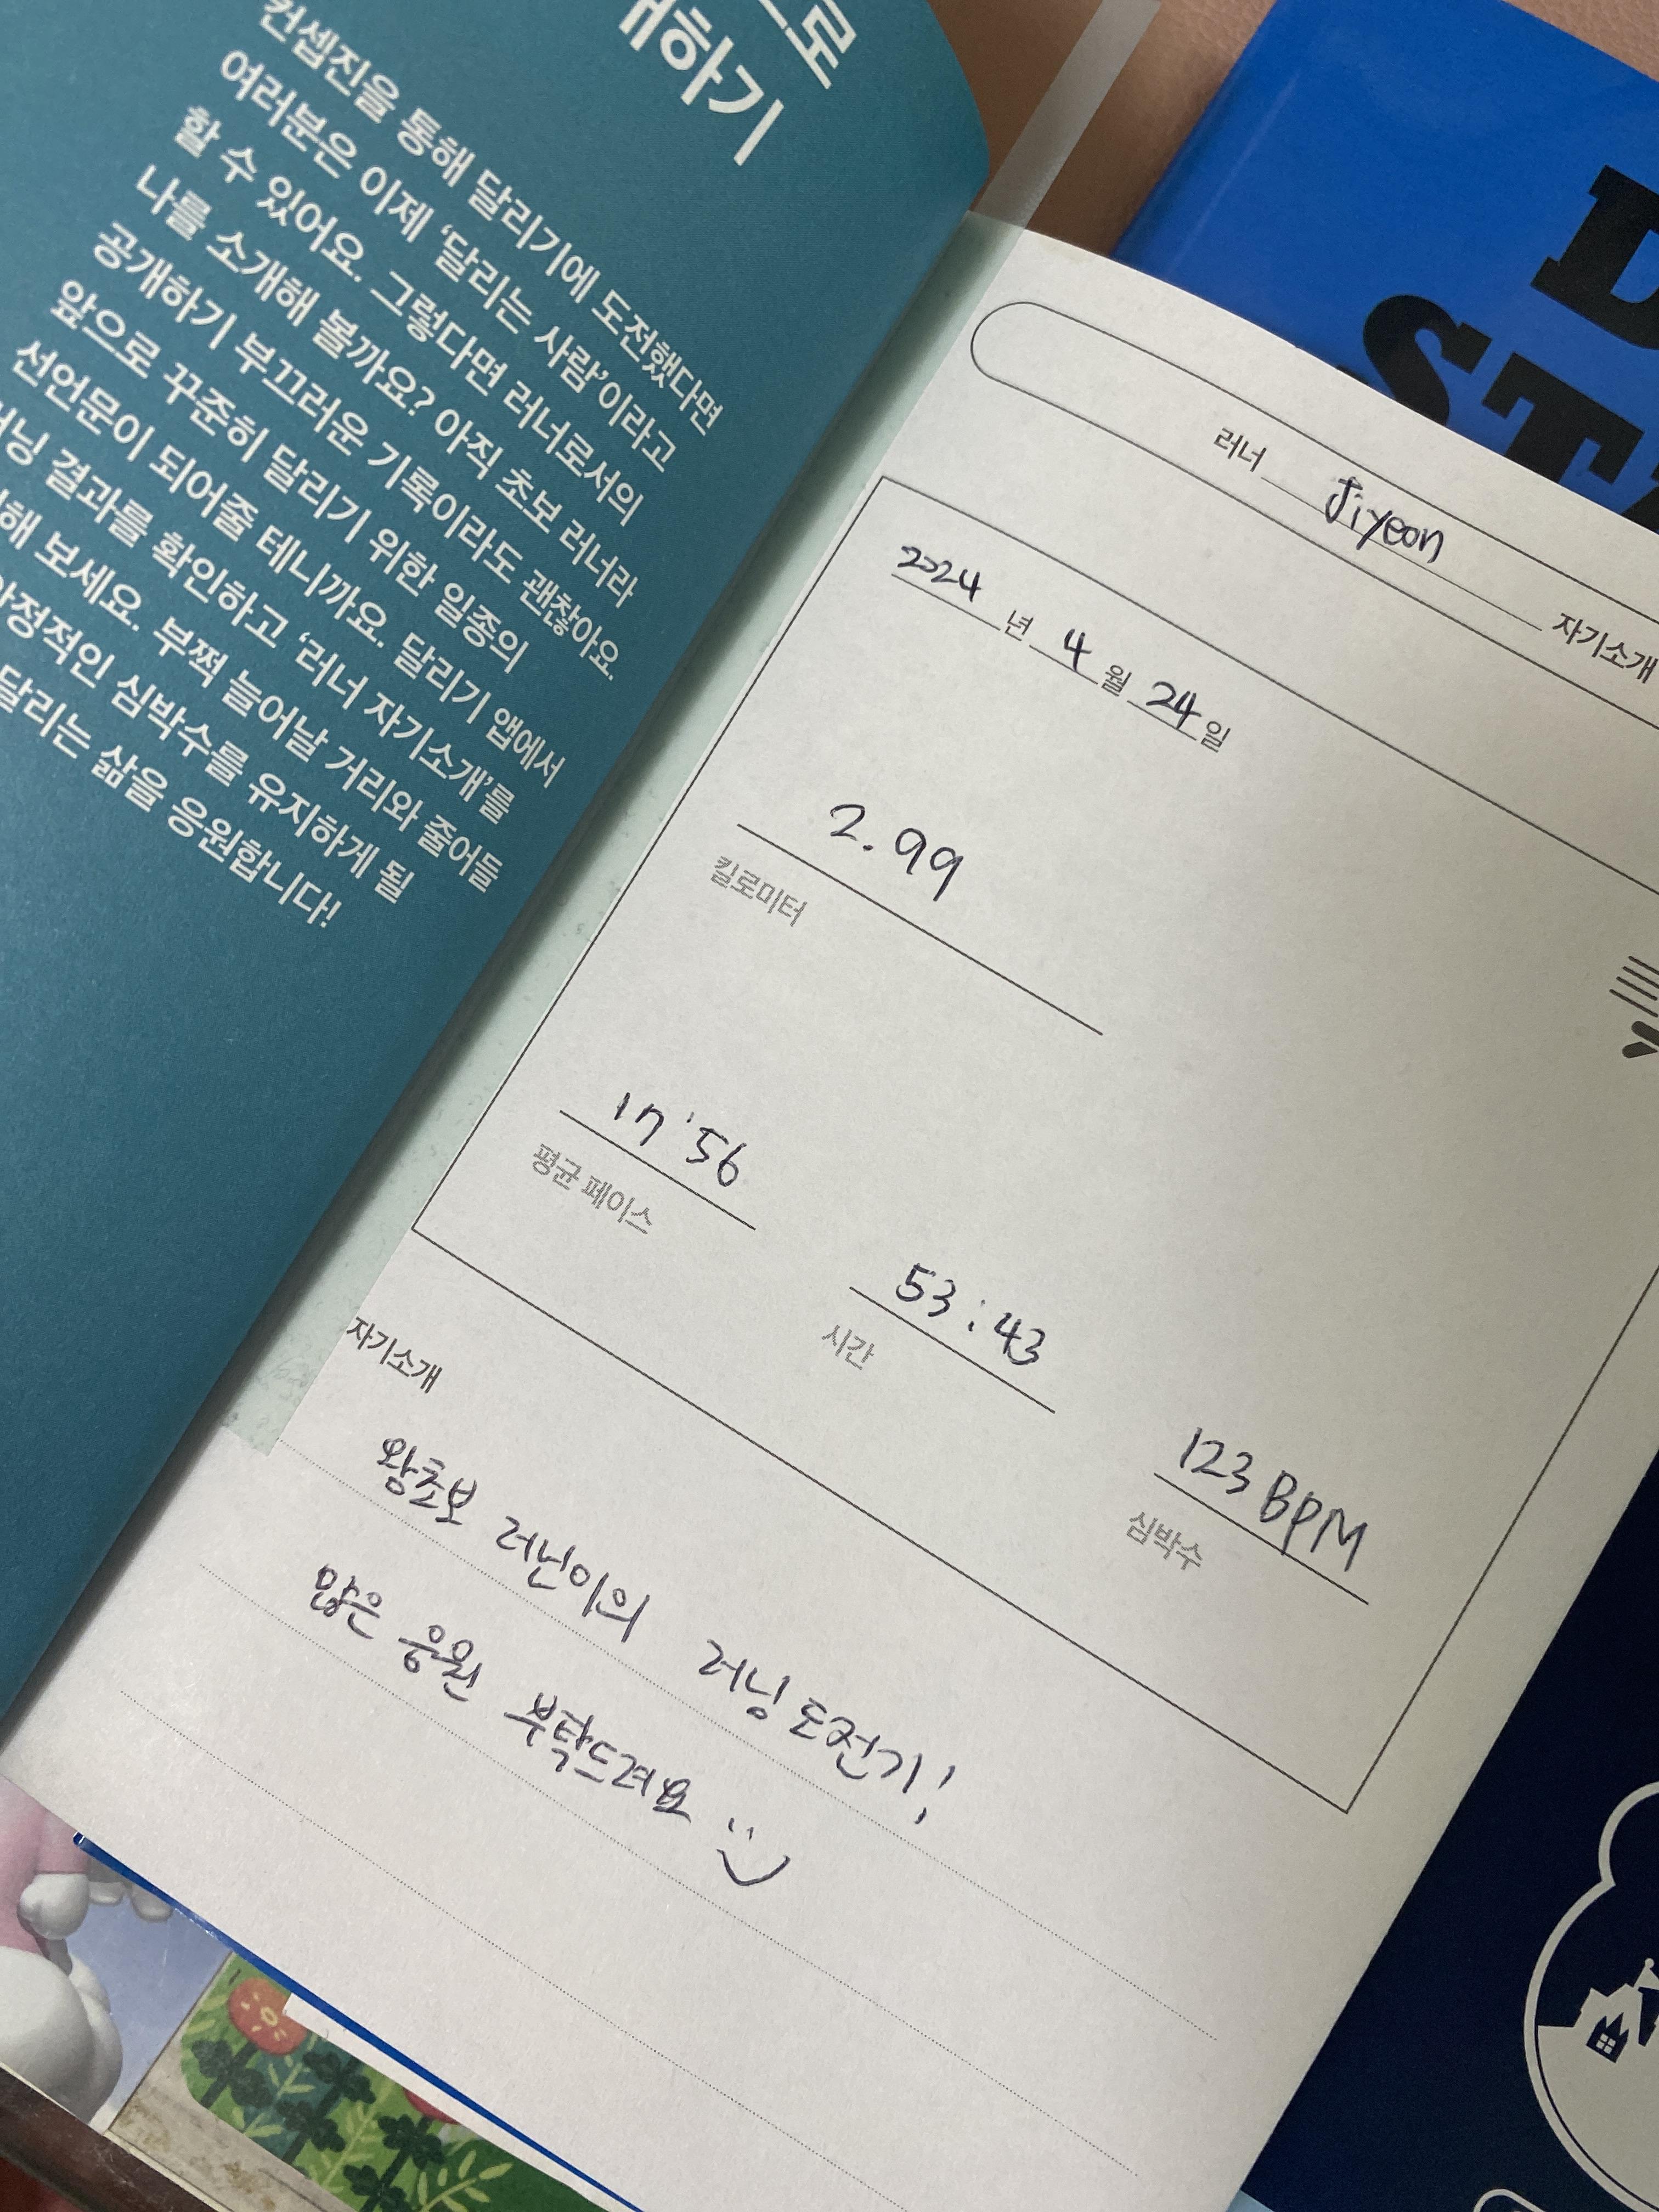 로
하기
컨셉진을 통해 달리기에 도전했다면
여러분은 이제 '달리는 사람'이라고
할 수 있어요. 그렇다면 러너로서의
나를 소개해 볼까요? 아직 초보 러너라
공개하기 부끄러운 기록이라도 괜찮아요.
앞으로 꾸준히 달리기 위한 일종의
선언문이 되어줄 테니까요. 달리기 앱에서
결과를 확인하고 '러너 자기소개'를
해 보세요. 부쩍 늘어날 거리와 줄어들
안정적인 심박수를 유지하게 될
달리는 삶을 응원합니다!
러너 Jiyeon 자기소개
2024 년 4 월 24 일
2.99
킬로미터
17'56
평균 페이스
53:43
시간
123 BPM
심박수
자기소개
왕초보 러닌이의 러닝 도전기!
많은 응원 부탁드려요